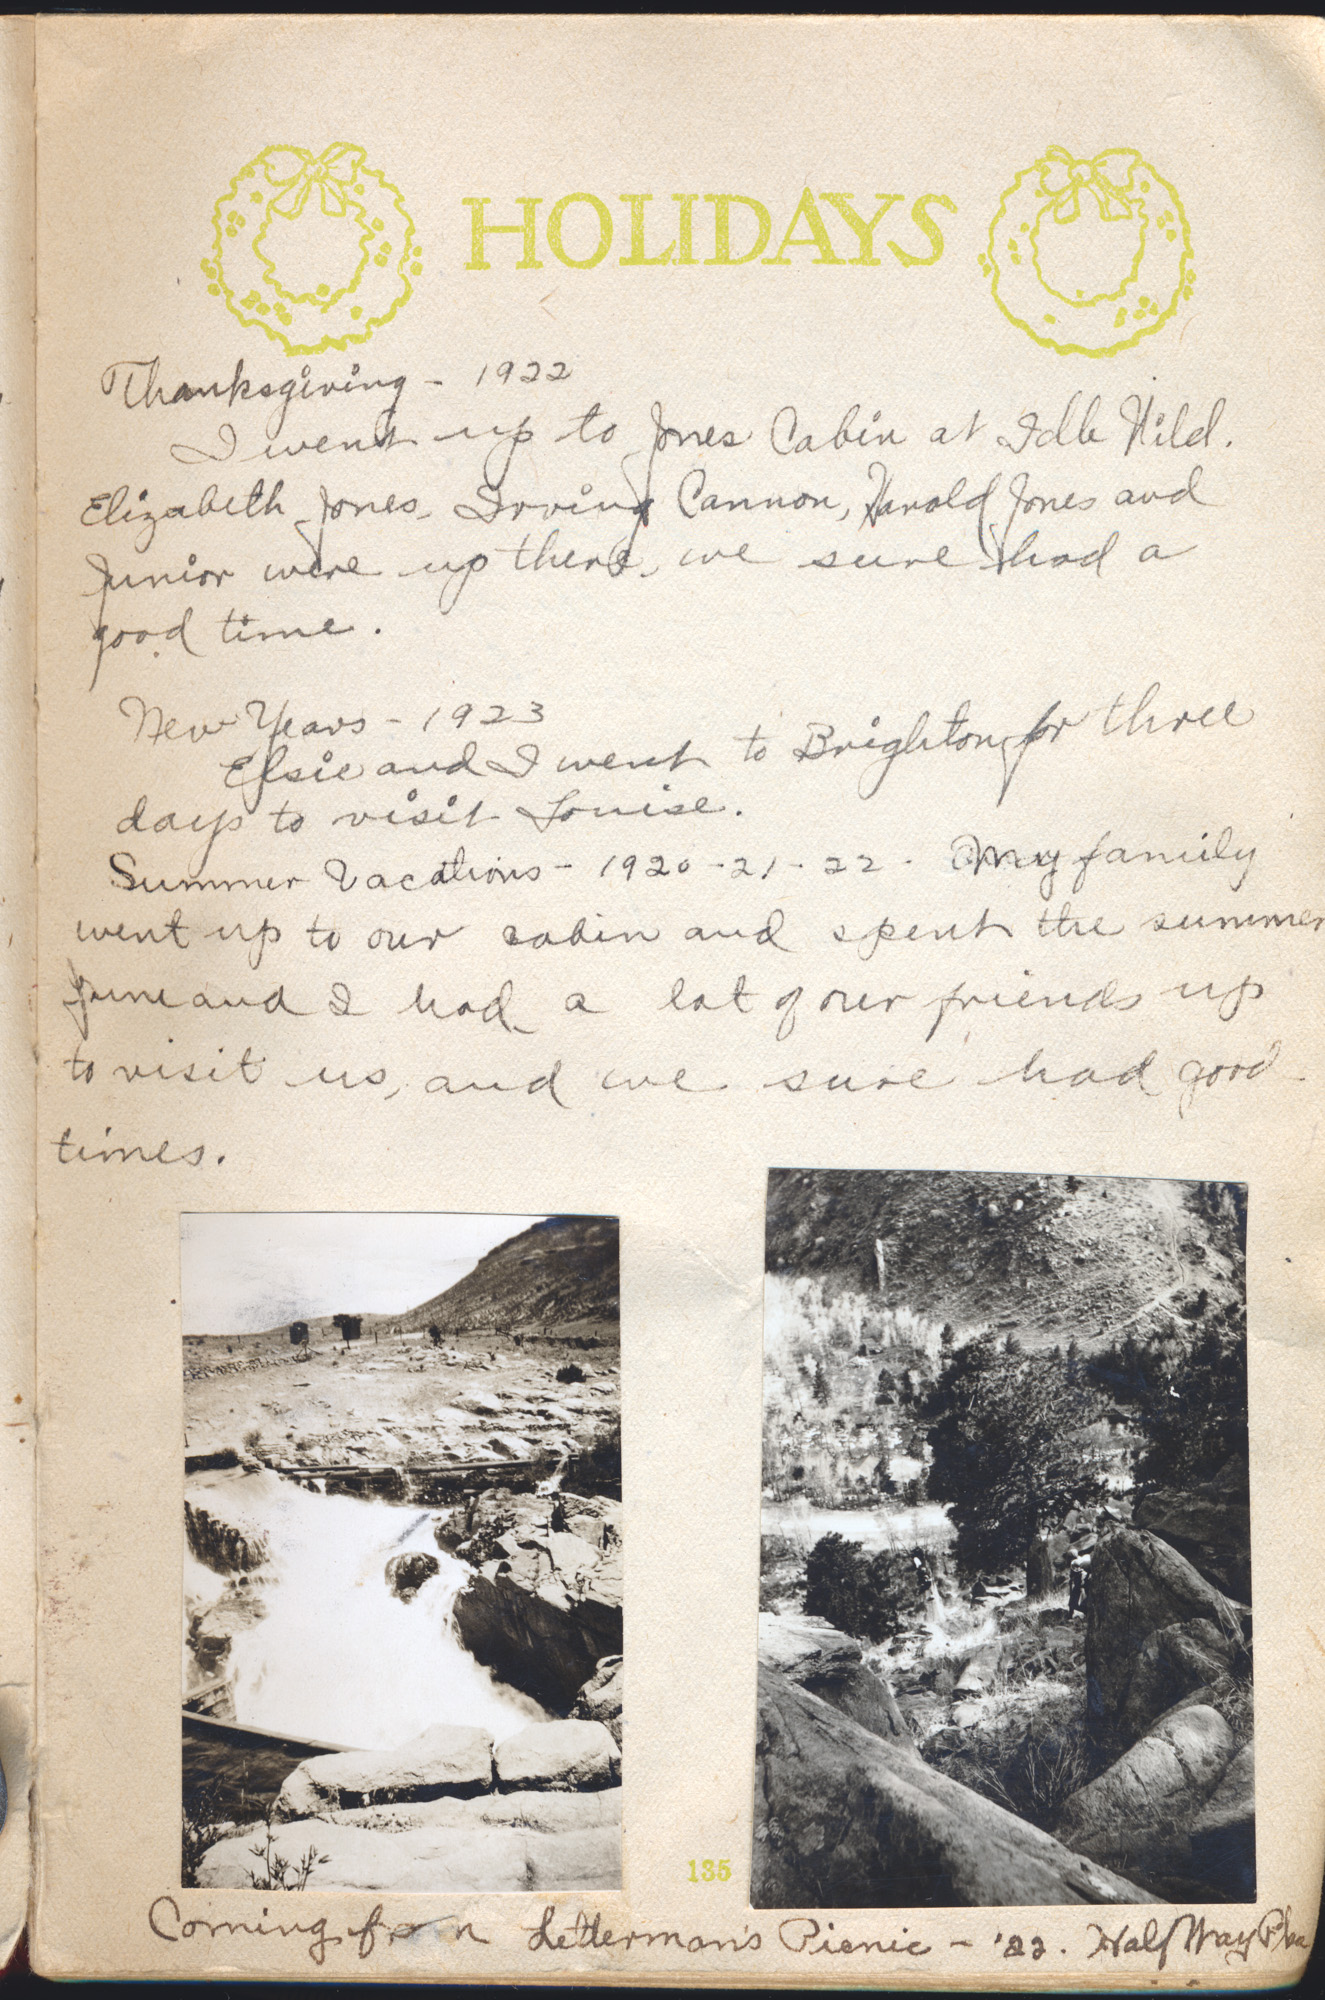 HOLIDAYS
Thanksgiving - 1922
I went up to Jones Cabin at Idle Wild.
Elizabeth Jones, Irving Cannon, Harold Jones and
Junior were up there, we sure had a
good time.
New Years - 1923
Elsie and I went to Brighton for three
days to visit Louise.
Summer Vacations - 1920 - 21 - 22 - My family
went up to our cabin and spent the summer
June and I had a lot of our friends up
to visit us, and we sure had good
times.
135
Coming from Letterman's Picnic - '22. Half Way